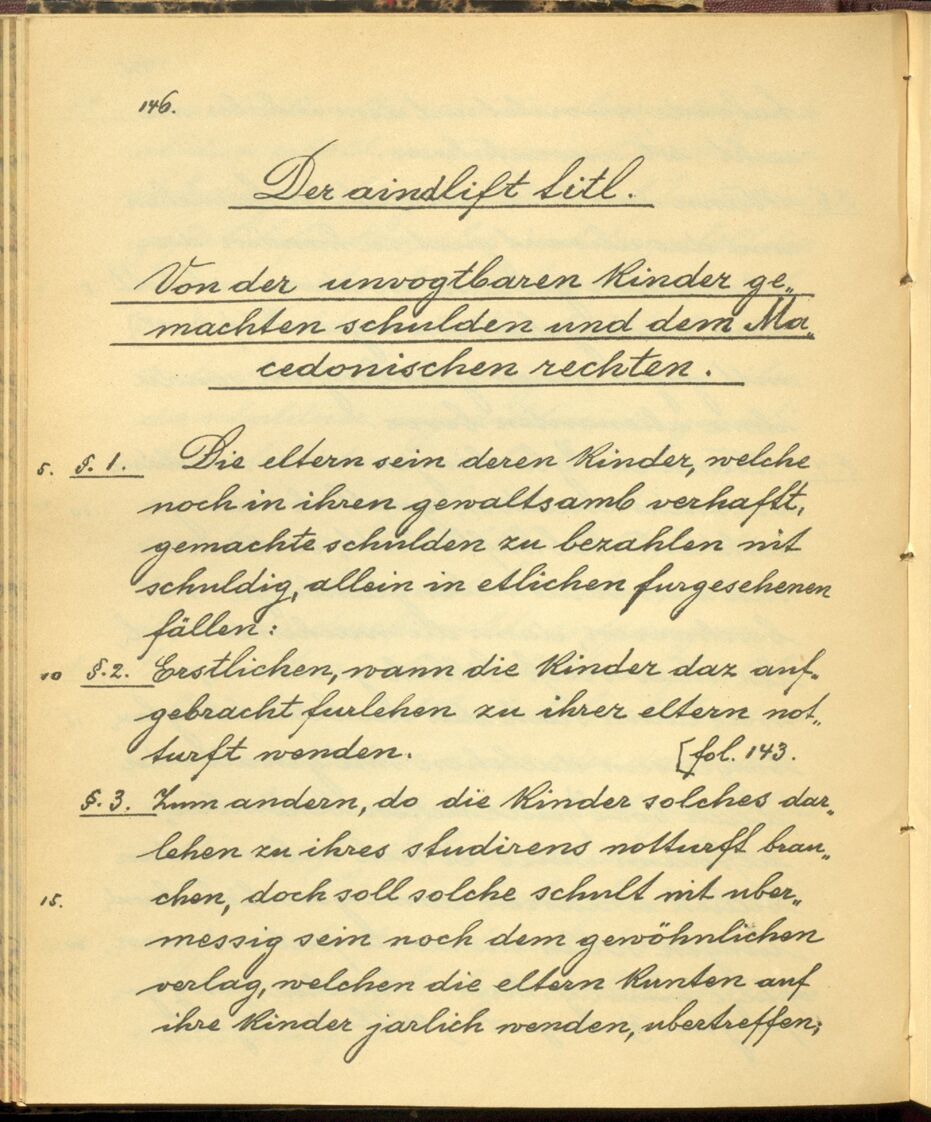 146.
Der aindlift titl.
Von der unvogtbaren Kinder ge„
machten schulden und dem Ma„
cedonischen rechten.
5. §. 1. Die eltern sein deren Kinder, welche
noch in ihren gewaltsamb verhafft,
gemachte schulden zu bezahlen nit
schuldig, allein in etlichen furgesehenen
fällen:
10 §. 2. Erstlichen, wann die Kinder daz auf„
gebracht furlehen zu ihrer eltern not„
turft wenden. [fol. 143.
§. 3. Zum andern, do die Kinder solches dar„
lehen zu ihres studirens notturft brau„
15. chen, doch soll solche schult nit uber„
messig sein noch dem gewöhnlichen
verlag, welchen die eltern Kunten auf
ihre Kinder jarlich wenden, ubertreffen;